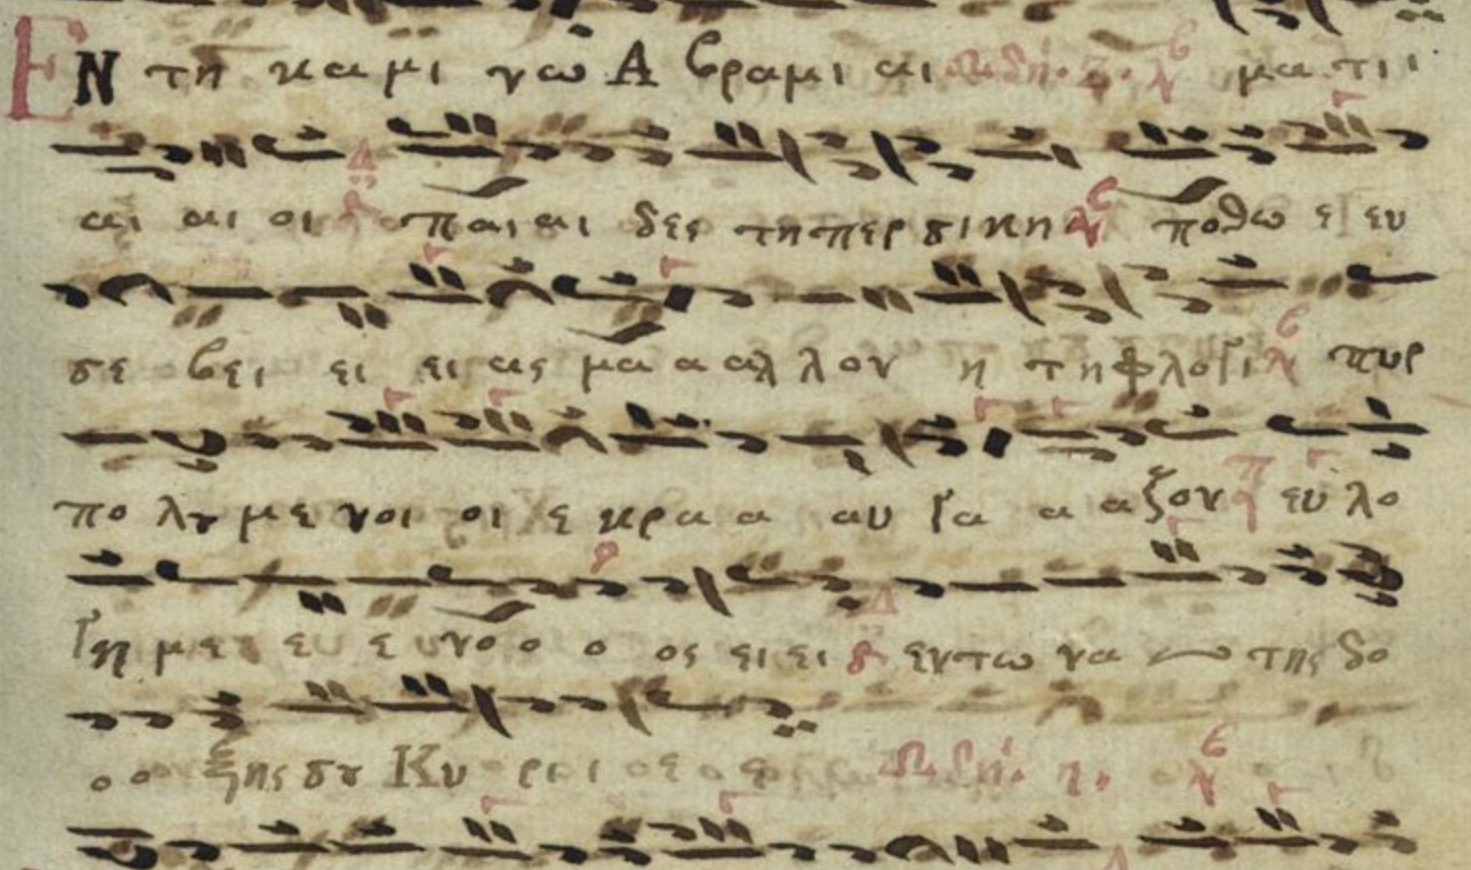 ΕΝ τη κα μι νω Α βραμι αι ωδή. ζ. μα τι ι
αι αι οι παι αι δες τη περ σι κη πο θω ε ευ
σε βει ει ει ας μα α αλ λον η τη φλο γι πυρ
πο λυ με νοι οι ε κρα α αυ γα α α ζον ευ λο
γη με ε ε νο ο ο ος ει ει εν τω να ω της δο
ο ο ξης σου Κυ ρι ι ο ο ε Ωδή. η.